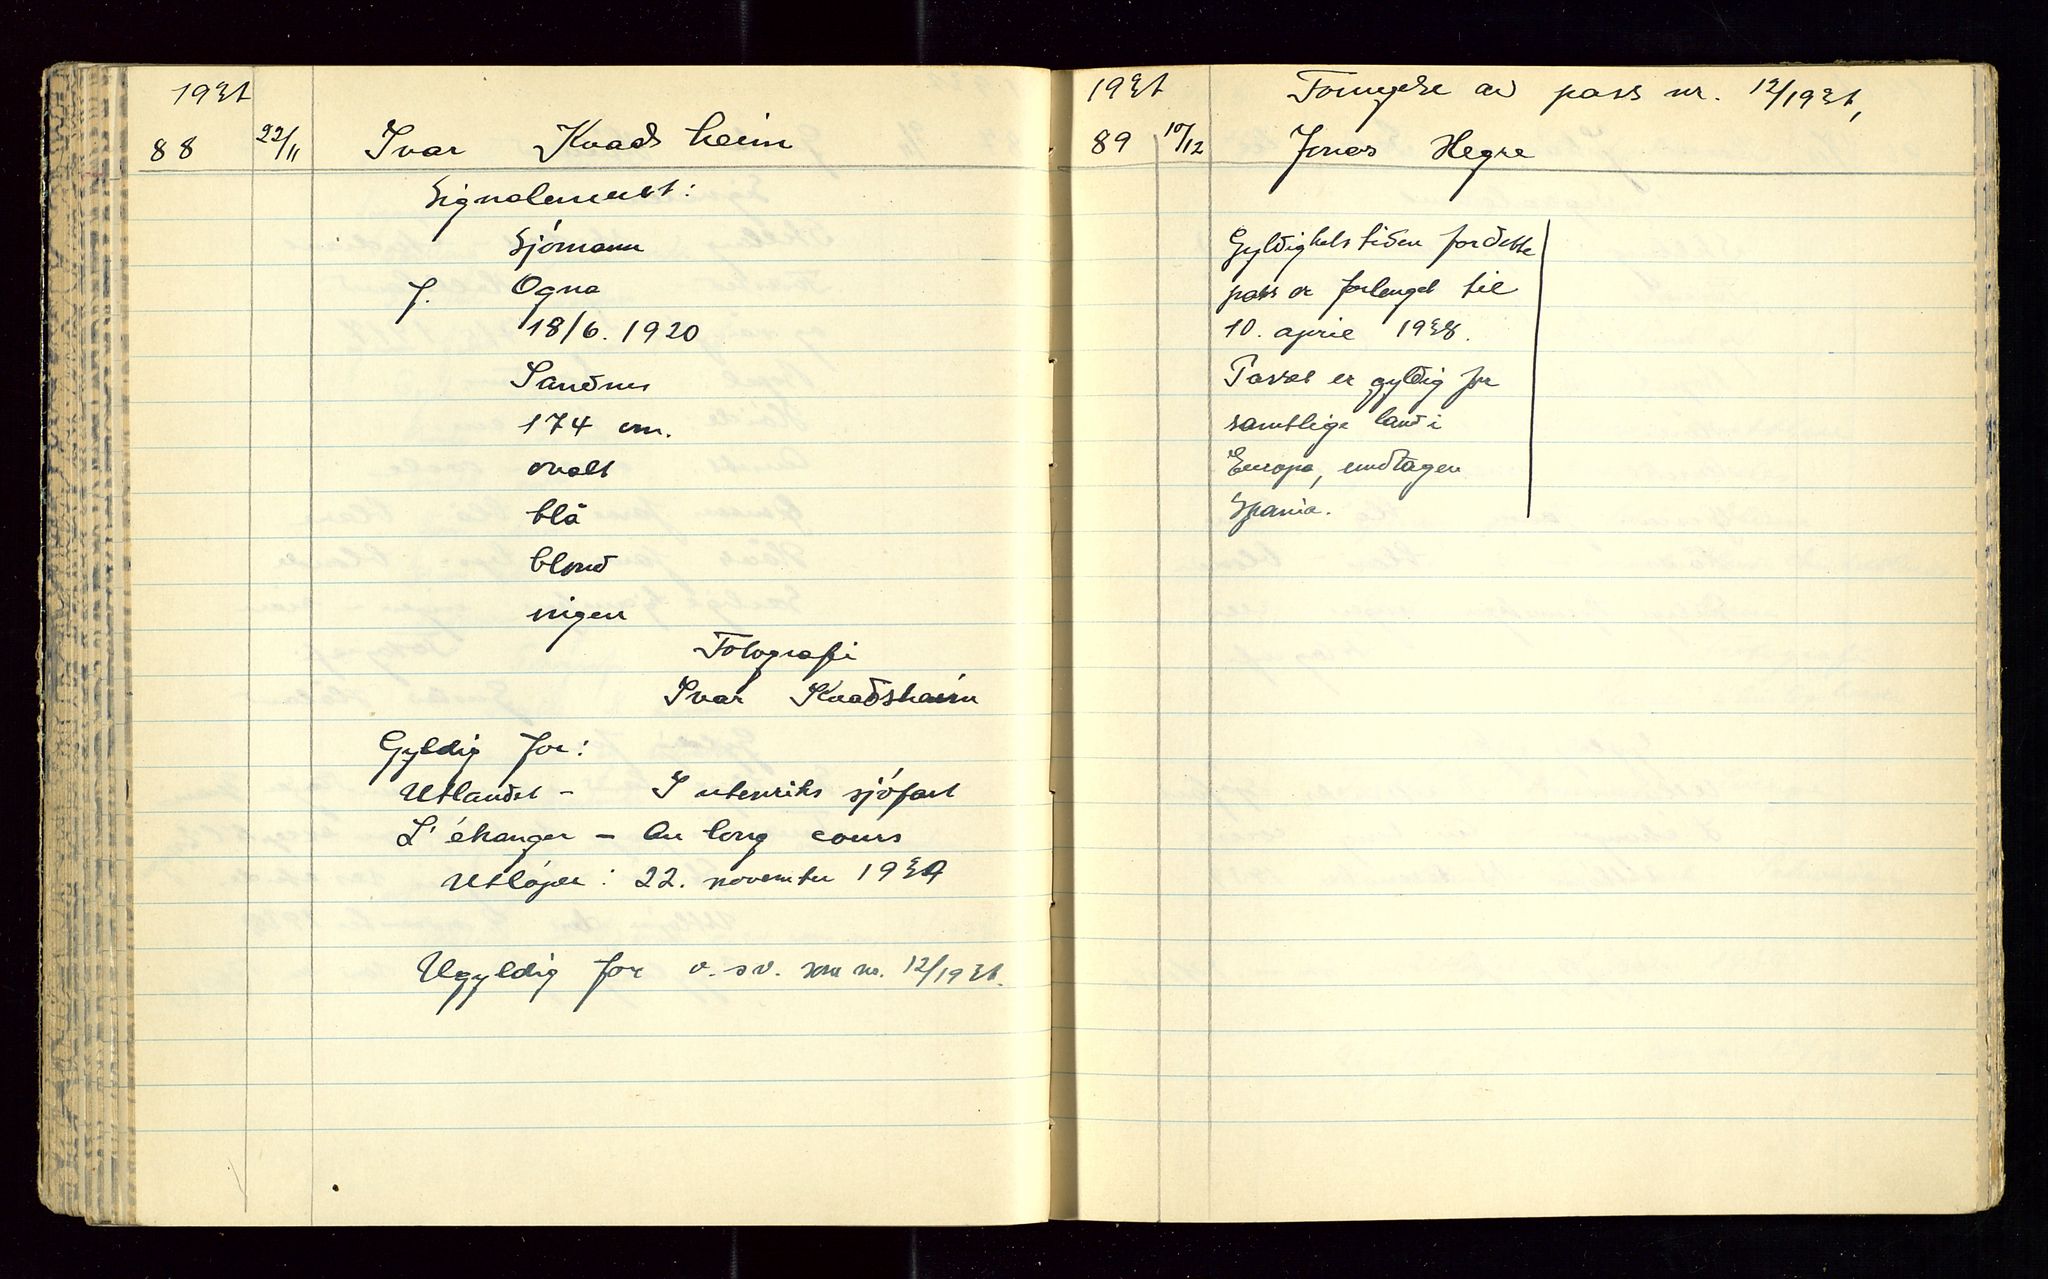 1937
88 22/11 Ivar Kvadsheim
Signalement:
Sjómann
f. Ogna
18/6. 1920
Sandnes
174 cm.
ovalt
blå
blond
ingen
Fotografi
Ivar Kvadsheim
Gyldig for:
Utlandet - I utenriks sjófart
L'étranger - Au long cours
Utlóper: 22. november 1939
Ugyldig for o.s.v. som nr. 12/1937.
1937 Fornyelse av pass nr. 12/1937,
89 10/12 Jonas Hegre
Gyldighetstiden for dette
pass er forlenget til
10. april 1938.
Passet er gyldig for
samtlige land i
Europa, undtagen
Spania.